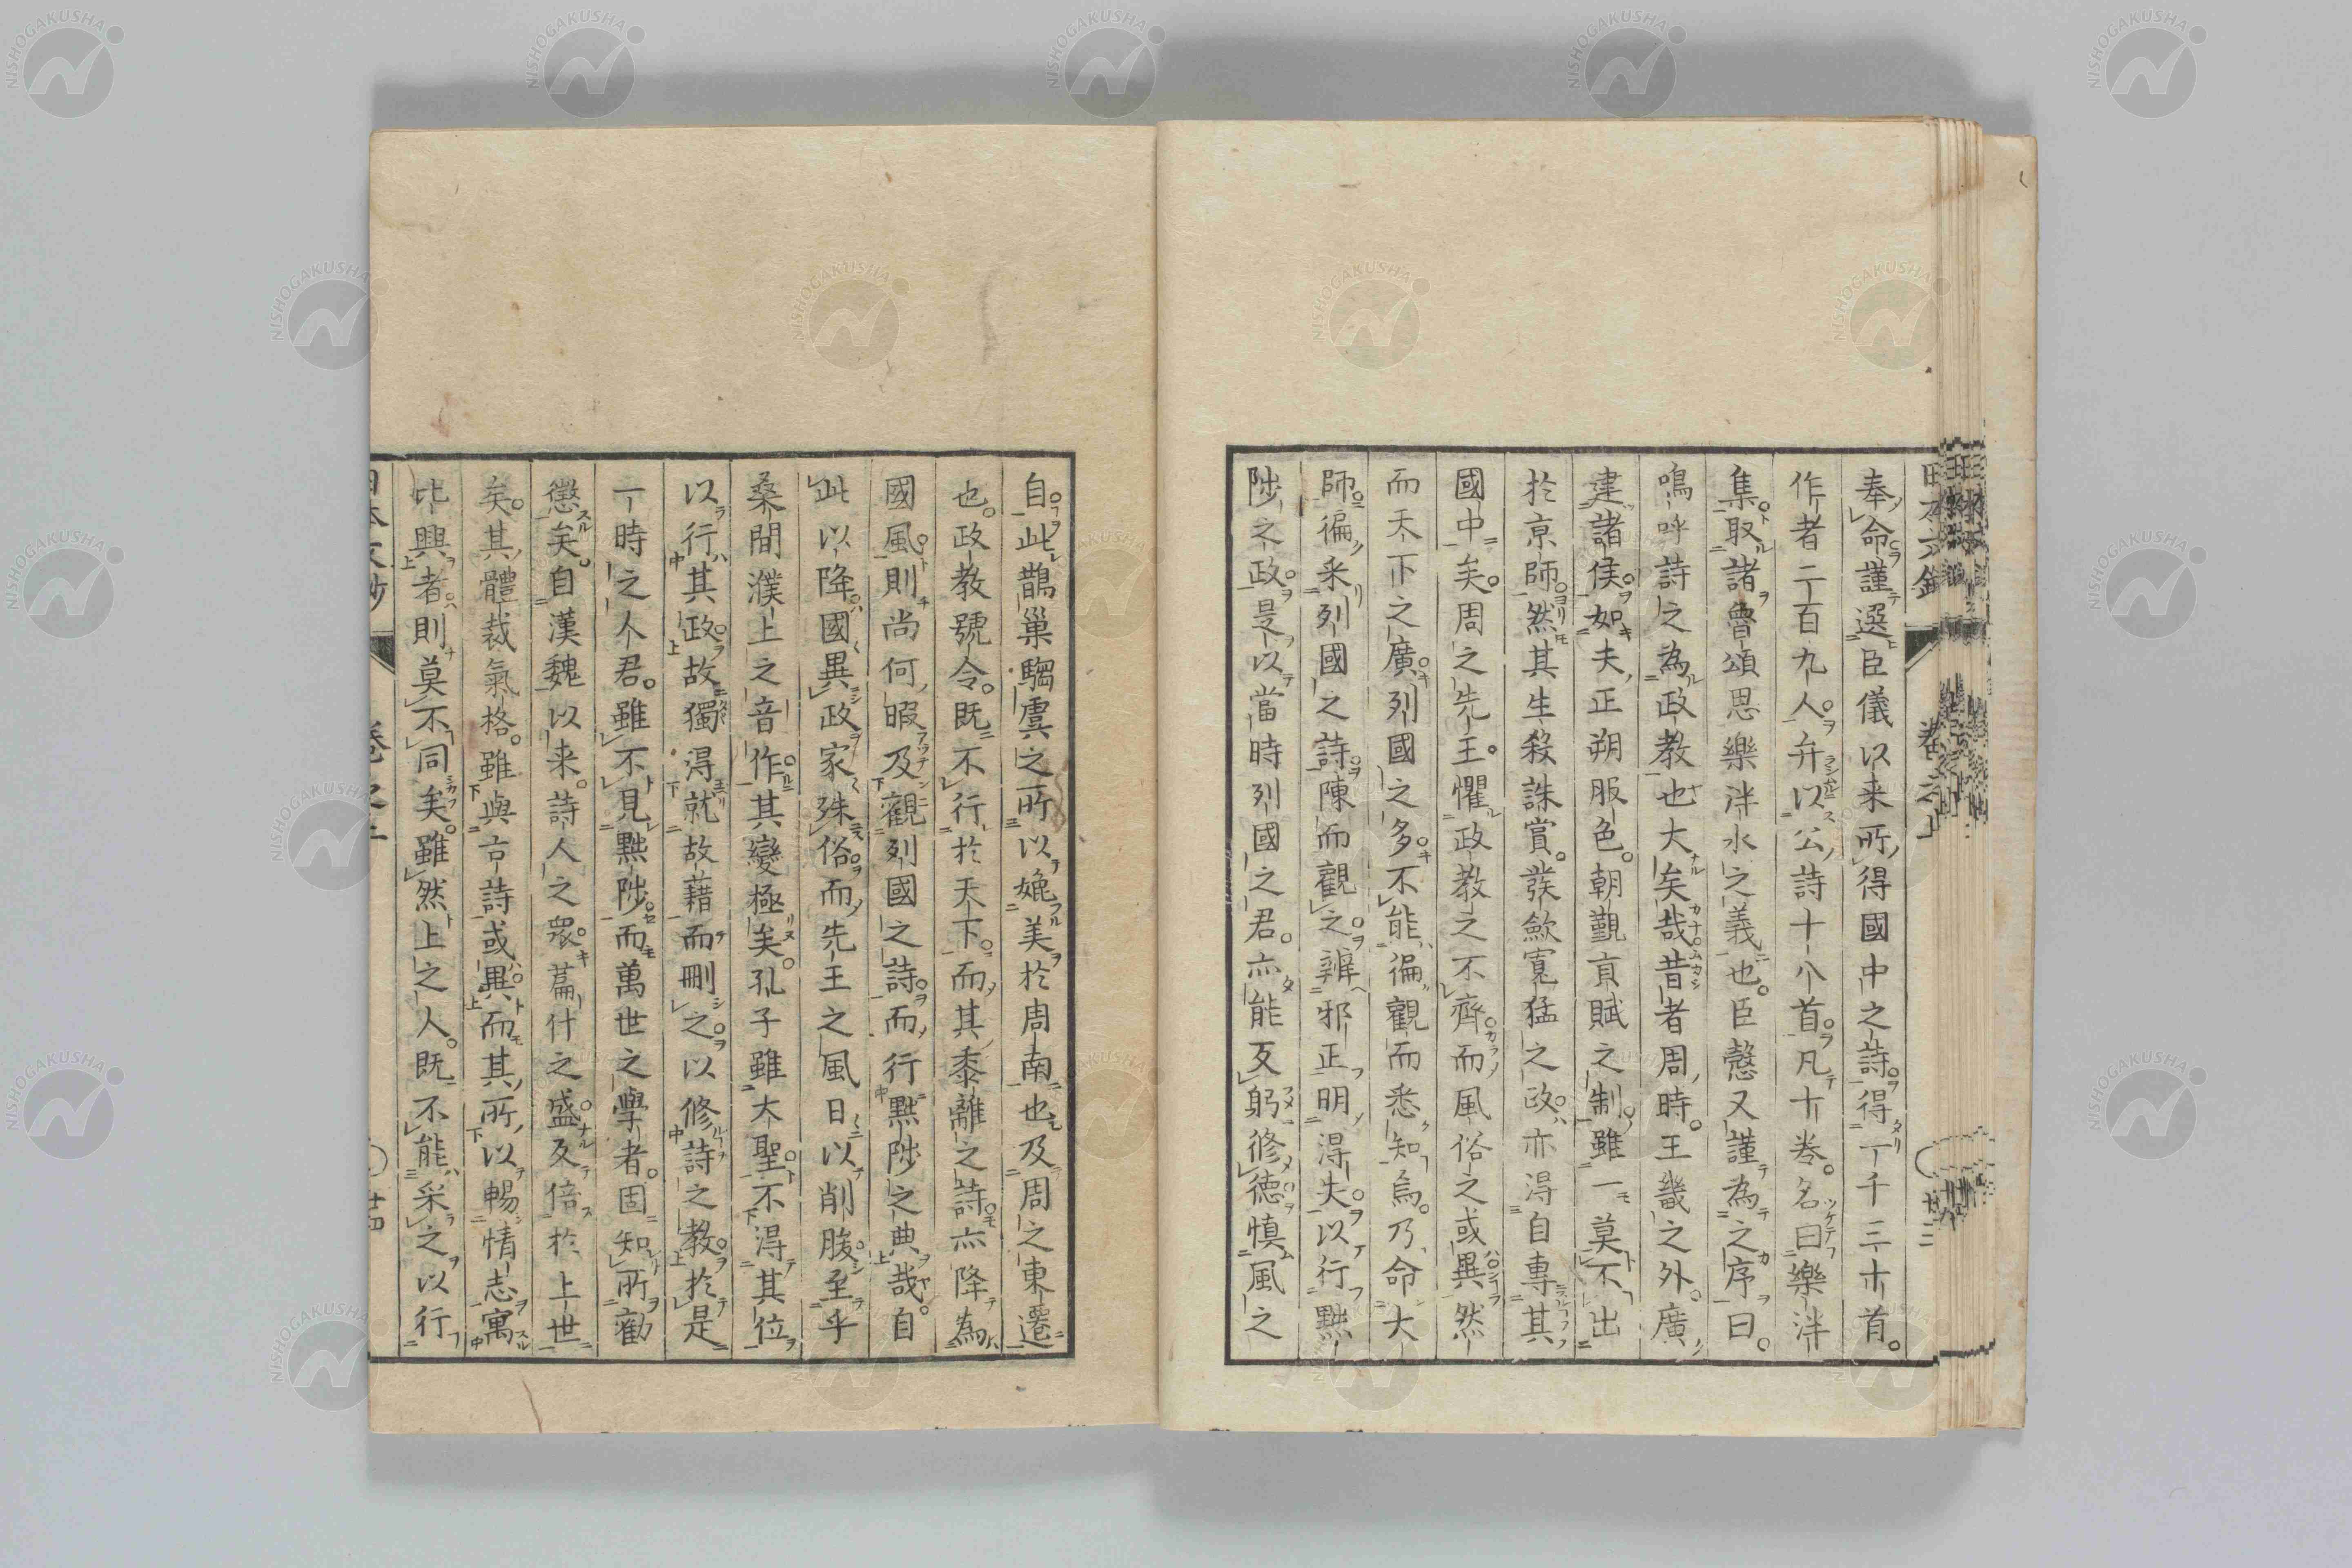 奉命謹選臣儀以来所得國中之詩得一千三十首。
作者二百九人弁以公詩十八首凡十巻。名曰樂泮
集取諸魯頌思樂泮水之義也。臣愨又謹為之序曰。
嗚呼詩之為政教也大矣哉昔者周時。王畿之外。廣
建諸侯。如夫正朔服色。朝覲貢賦之制。雖一莫不出
於京師。然其生殺誅賞。發歛寛猛之政亦得自專其
國中矣。周之先王。懼政教之不齊。而風俗之或異然
而天下之廣。列國之多。不能徧観而悉知烏。乃命大
師。徧采列國之詩。陳而觀之。辨邪正明得失。以行黜
陟之政。是以當時列國之君。亦能反躬修徳慎風之
自。此鵲巢騶虞之所以媲美於周南也及周之東遷
也。政教號令。既不行於天下。而其黍離之詩。亦降為
國風。則尚何暇及觀列國之詩。而行黜陟之典哉。自
此以降。國異政家殊俗。而先王之風日以削朘。至乎
桑間濮上之音作。其變極矣。孔子雖大聖。不得其位
以行其政。故獨得就故藉而刪之。以修詩之教。於是
一時之人君。雖不見黜陟。而萬世之學者。固知所勸
懲矣。自漢魏以来。詩人之衆。篇什之盛。反倍於上世
矣。其體裁氣格。雖與古詩或異。而其所以暢情志寓
比興者。則莫不同矣。雖然上之人。既不能采之以行
巻之上
廿三
廿四
NISHOGAKUSHA